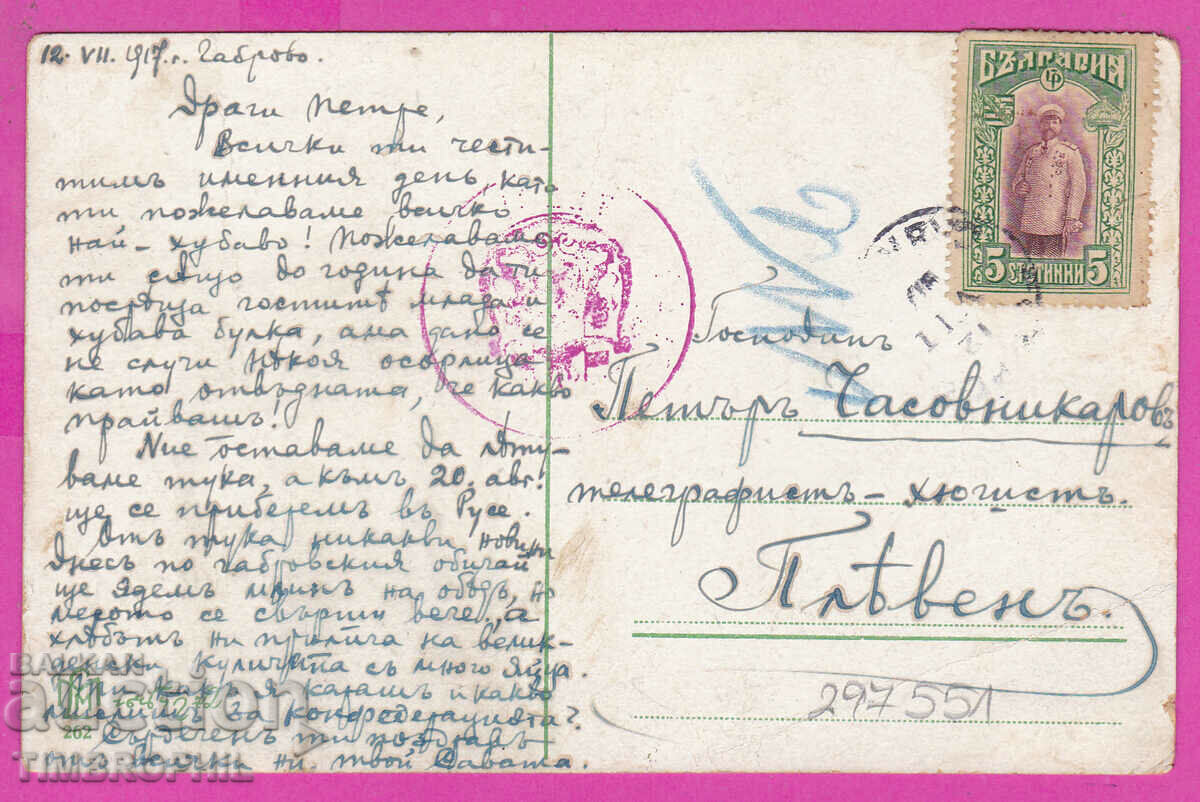 12. VII. 917 г. Габрово.
Драги Петре,
Всички ти чести-
тимъ именния день като
ти пожелаваме всичко
най-хубаво! Пожелаваме
ти също до година да ти
посреща гоститѣ млада и
хубава булка, ама дано се
не случи нѣкоя
като отвъдната, че какво
правишъ!
Ние оставаме да лѣту-
ваме тука, а къмъ 20. авг.
ще се приберемъ въ Русе.
Отъ тука никакви новини
Днесъ по габровския обичай
ще ядемъ млинъ на обѣдъ, но
се свърши вече, а
хлѣбътъ ни прилича на велик-
денски съ много яйца.
какъ я карашъ и какво
мислишъ за конфедерацията?
Сърдеченъ ти поздравъ
отъ всички ни. твой Савата.
262
БЪЛГАРИЯ
5 СТОТИНКИ 5
Господинъ
Петъръ Часовникаровъ
телеграфистъ - хюгистъ.
Плѣвенъ.
297551
BALKAN
auction
TIMBROPHIL